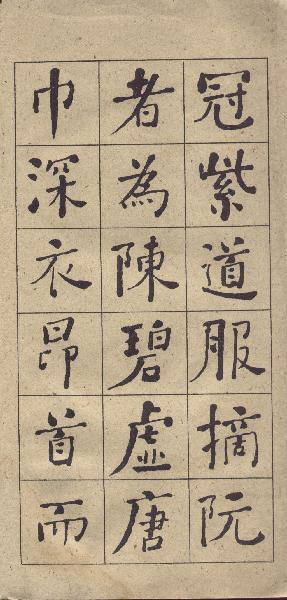 冠紫道服摘阮
者為陳碧虛唐
巾深衣昂首而